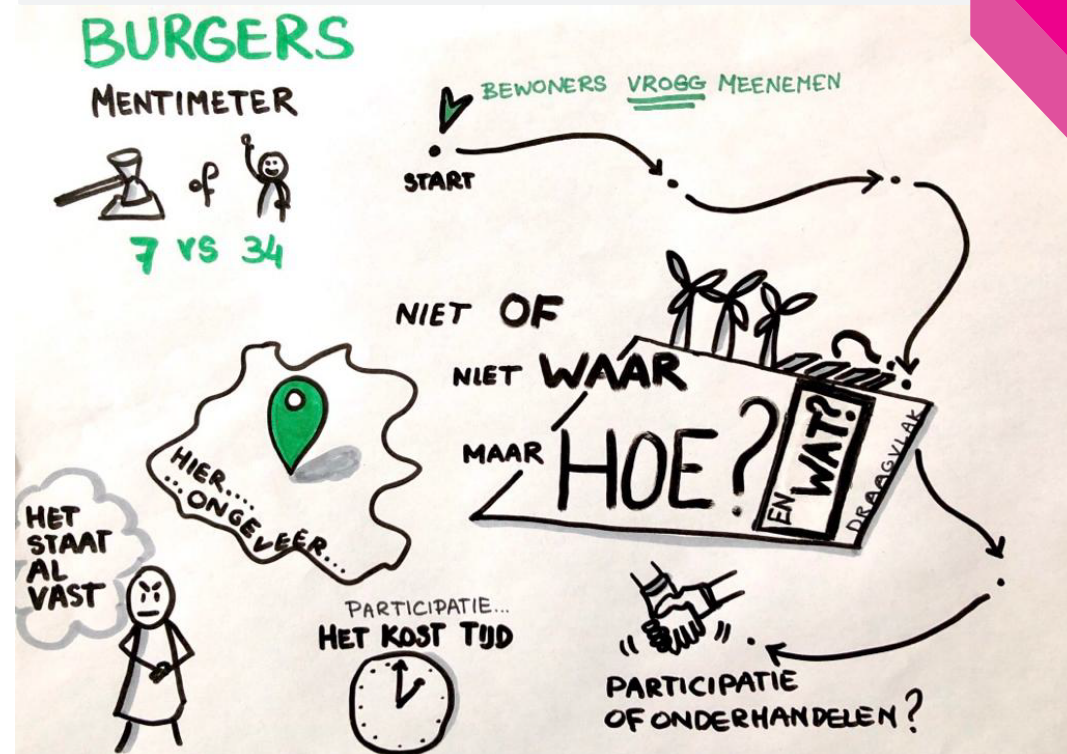 BURGERS
MENTIMETER
of
7 VS 34
BEWONERS VROGG MEENEMEN
START
NIET OF
NIET WAAR
MAAR HOE?
EN WAT?
DRAAGVLAK
HIER...
...ONGEVEER...
HET
STAAT
AL
VAST
PARTICIPATIE...
HET KOST TIJD
PARTICIPATIE
OF ONDERHANDELEN?